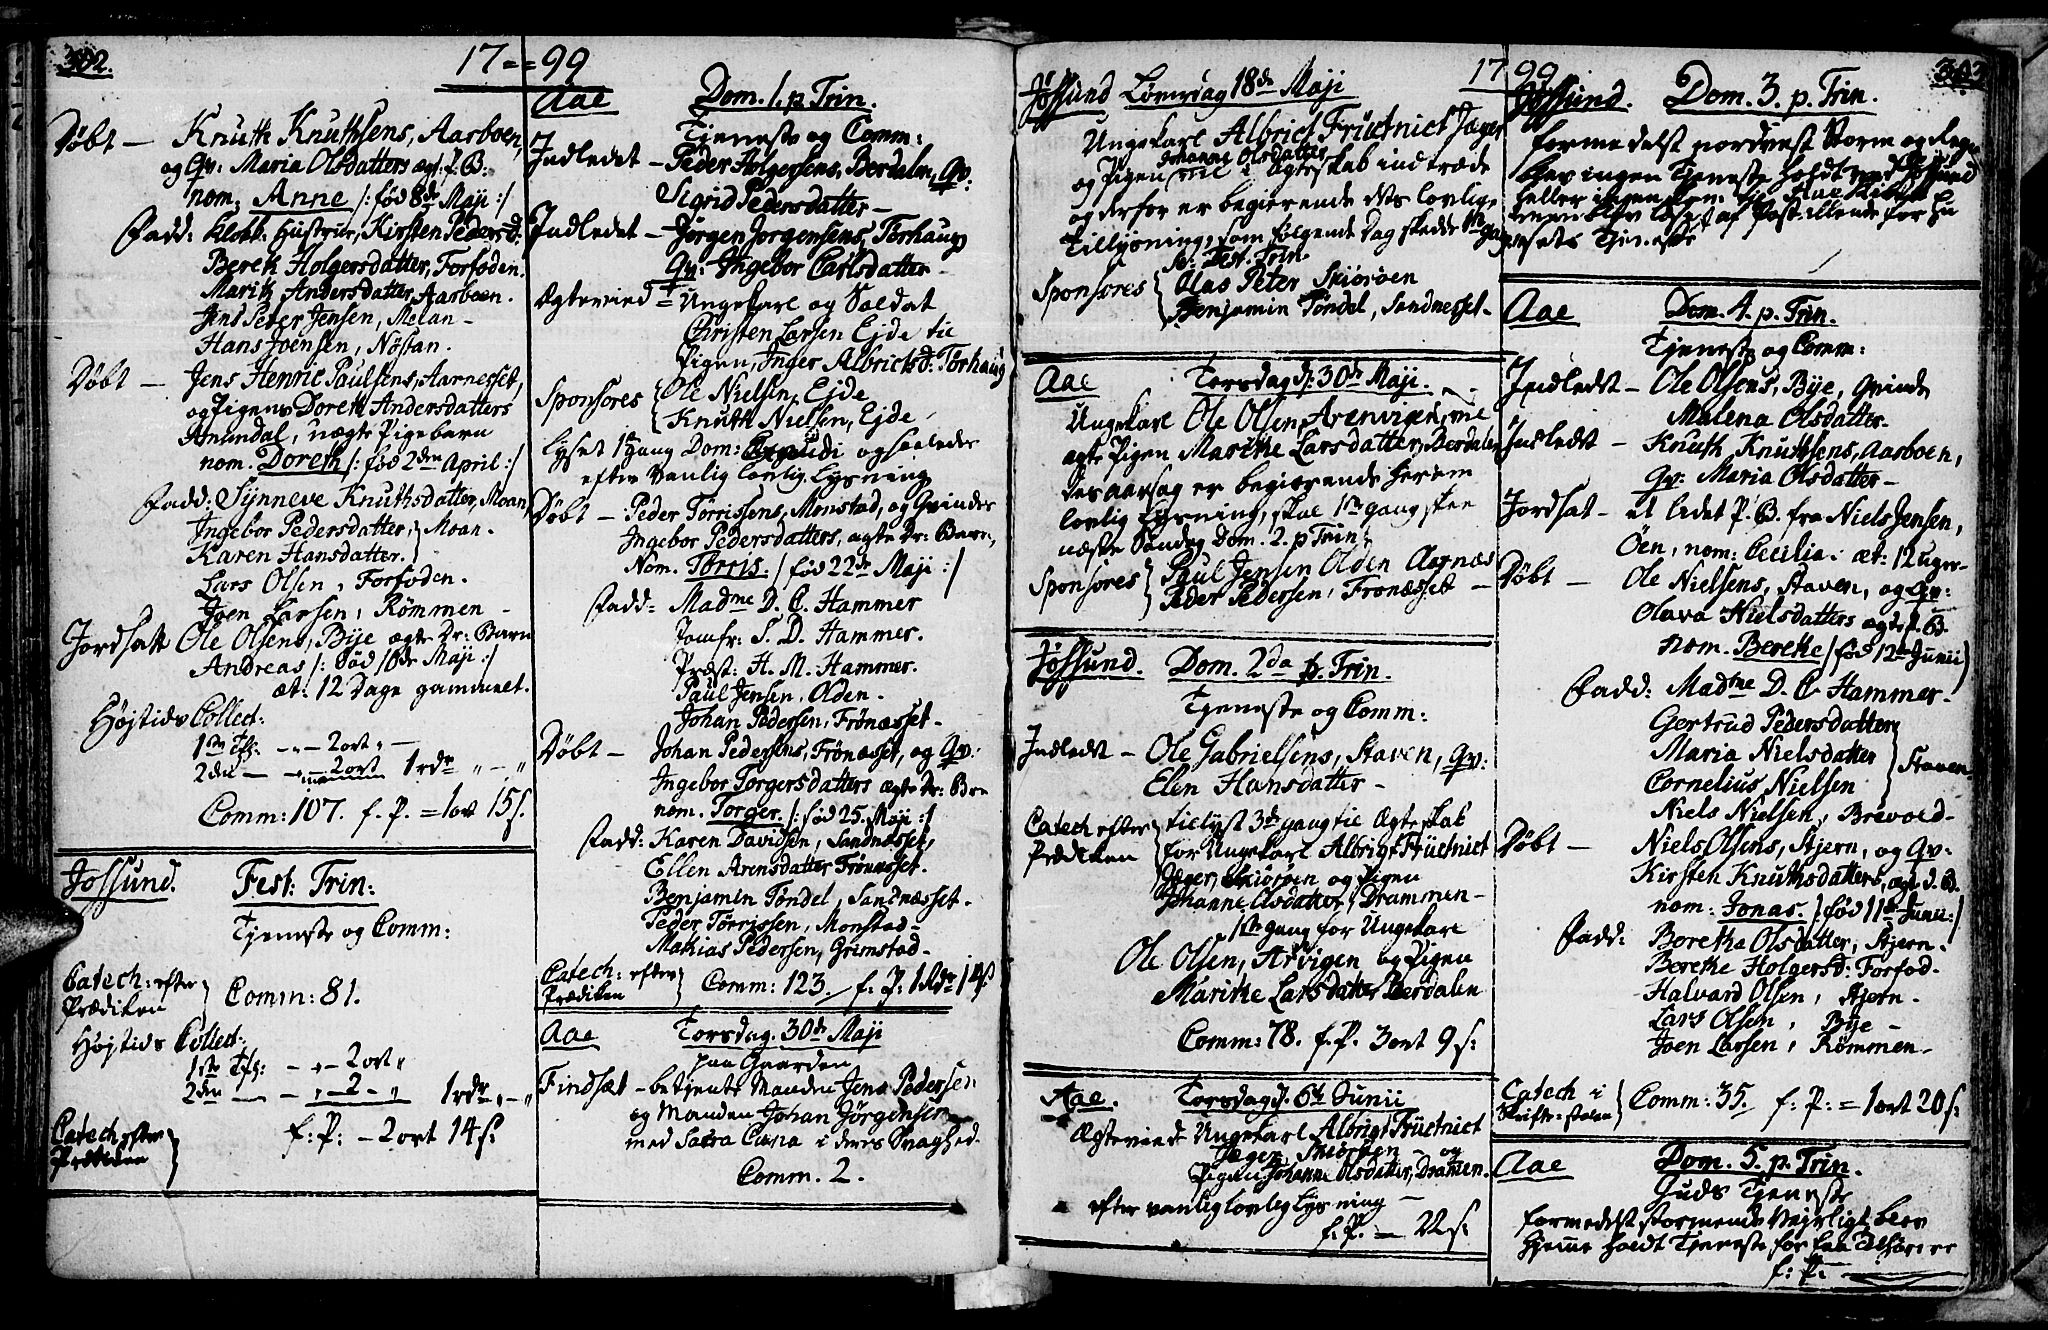 302.
17 = 99
Døbt — Knuth Knuthsens, Aarboen,
og Qv: Maria Olsdatters ægt: P. B:
nom: Anne /: fød 8de Maji :/
Fadd: Klokk: Hustrue, Kirsten Pedersd:
Bereth Holgersdatter, Forfoden.
Marith Andersdatter, Aarboen.
Jens Peter Jensen, Melan –
Hans Joensen, Nøstan.
Døbt — Jens Henric Paulsens, Aarnesset,
og Pigens Doreth Andersdatters
Amundal, uægte Pigebarn
nom. Doreth /: fød 2den April :/
Fadd: Synneve Knuthsdatter, Moan,
Ingebor Pedersdatter, } Moan.
Karen Hansdatter.
Lars Olsen, Forfoden.
Joen Larsen, Römmen –
Jordsatt Ole Olsens, Bije ægte Dr: Barn
Andreas /: død 16de Maji :/
æt: 12 Dage gammelt.
Højtids Collect:
1ste Tfl: – „ – 2 ort „ –
2den – – „ – 2 ort 1 rdr „ – „
Comm: 107. f. P. = 1 ort 15 s.
Jøssund. Fest: Trin:
Tjeneste og Comm:
Catech: efter
Prædiken } Comm: 81.
Højtids Collect:
1ste Tfl: – „ – 2 ort „
2den – – „ – 2 – „ 1 rdr „ – „
f: P: – 2 ort 14 s:
Catech efter
Prædiken }
Aae Dom. 1. p. Trin.
Tjeneste og Comm:
Indledet — Peder Holgersens, Berdalen, Qv:
Sigrid Pedersdatter –
Indledet — Jørgen Jørgensens, Torhaug
Qv: Ingebor Carlsdatter –
Ægtevied = Ungekarl og Soldat
Christen Larsen Ejde til
Pigen, Inger Albrictsd: Torhaug
Sponsores { Ole Nielsen, Ejde
Knuth Nielsen, Ejde,
lyset 1te gang Dom: Exaudi og saaledes
efter vanlig lovlig Lysning
Døbt — Peder Tørrissens, Monstad, og Qvindes
Ingebor Pedersdatters, ægte Dr: Barn,
Nom. Tørris. /: fød 22de Maji :/
Fadd: Madme D. C. Hammer
Jomfr: S. D. Hammer.
Præst: H. M. Hammer.
Paul Jensen, Olden.
Johan Pedersen, Frönæsset –
Døbt — Johan Pedersens, Frönæsset, og Qv:
Ingebor Torgersdatters ægte Dr: Brn
nom. Torger. /: fød 25. Maji :/
Fadd: Karen Davidsen, Sandnæsset,
Ellen Arensdatter Frönæsset.
Benjamin Töndel, Sandnæsset.
Peder Tørrissen, Monstad –
Mathias Pedersen, Grimstad –
Catech: efter
Prædiken } Comm: 123. f. P: 1 Rdr 14 s
Aae Torsdag. 30de Maji
paa Gaarden
Findsæt – betjente Manden Jens Pedersen
og Manden Johan Jörgensen
med Sacra Coena i deres Svaghed.
Comm. 2.
1799
303
Jøssund Løverdag 18de Maji
Ungekarl Albrict Fructnict Jæger
og Pigen Johanne Olsdatter vil i Ægteskab indtræde
og derfor er begierende des lovlige
Tillysning, som følgende Dag skedde 1te Gang
se: Fest. Trin.
Sponsores { Olas Peter Skiöröen
Benjamin Töndel, Sandnesset.
Aae Torsdag d: 30de Maji.
Ungekarl Ole Olsen Arenvigen, vil
ægte Pigen Marithe Larsdatter, Berdalen
Desaarsag er begierende herom
lovlig Lysning, skal 1te gang skee
næste Søndag Dom. 2. p Trin:
Sponsores } Paul Jensen Olden Aarnæs
Peder Pedersen, Fronæsset –
Jøssund. Dom. 2da p. Trin.
Tjeneste og Comm:
Indledt — Ole Gabrielsens, Staven, Qv:
Elen Hansdatter –
Catech efter
Prædiken } tillyst 3de gang til Ægteskab
for Ungekarl Albrigt Früctnict
Jæger, Skiöröen og Pigen
Johanne Olsdatter, Drammen –
1ste Gang for Ungekarl
Ole Olsen, Arvigen og Pigen
Marithe Larsdatter Berdalen
Comm: 78. f. P. 3 ort 9 s:
Aae. Torsdag d. 6te Junii
Ægteviede Ungekarl Albrigt Früctnict
Jæger, Skiöröen – og
Pigen Johanne Olsdatter, Dramen.
efter vanlig lovlig Lysning –
f. P. – 22 s:
Jøssund. Dom. 3. p. Trin.
formedelst nordvest Storm og Regn
blev ingen Tjeneste holdt ved Jøssund
heller ingen kom til Aae Kirke
men blev læst af Postillende for Hu
usets Tjeneste
Aae Dom. 4. p. Trin.
Tjeneste og Comm:
Indledt — Ole Olsens, Bye, Qvinde
Malena Olsdatter –
Indledt — Knuth Knuthsens, Aarboen,
Qv: Maria Olsdatter –
Jordsat — et ledet P. B. fra Niels Jensen,
Öen, nom: Cecilia. æt: 12 Uger –
Døbt — Ole Nielsens, Staven, og Qv:
Olava Nielsdatters ægte P. B.
nom. Berethe /: fød 12te Junii /
Fadd: Madme D. C. Hammer –
Gertrud Pedersdatter
Maria Nielsdatter
Cornelius Nielsen } Staven
Niels Nielsen, Brevold –
Døbt — Niels Olsens, Stjern, og Qv:
Kirsten Knuthsdatters, ægt d. B.
nom: Jonas. /: fød 11te Junii :/
Fadd: Beretha Olsdatter, Stjern.
Berethe Holgersd: Forfod.
Halvard Olsen, Stjern.
Lars Olsen, Bye –
Joen Larsen, Römmen –
Catech i
Skrifte-stolen } Comm: 35. f: P: = 1 ort 20 s.
Aae Dom. 5. p. Trin.
Guds Tjeneste
formedelst stormende Vejrligt blev
hjemme holdt Tjeneste for faa Tilhörere
f: P: –